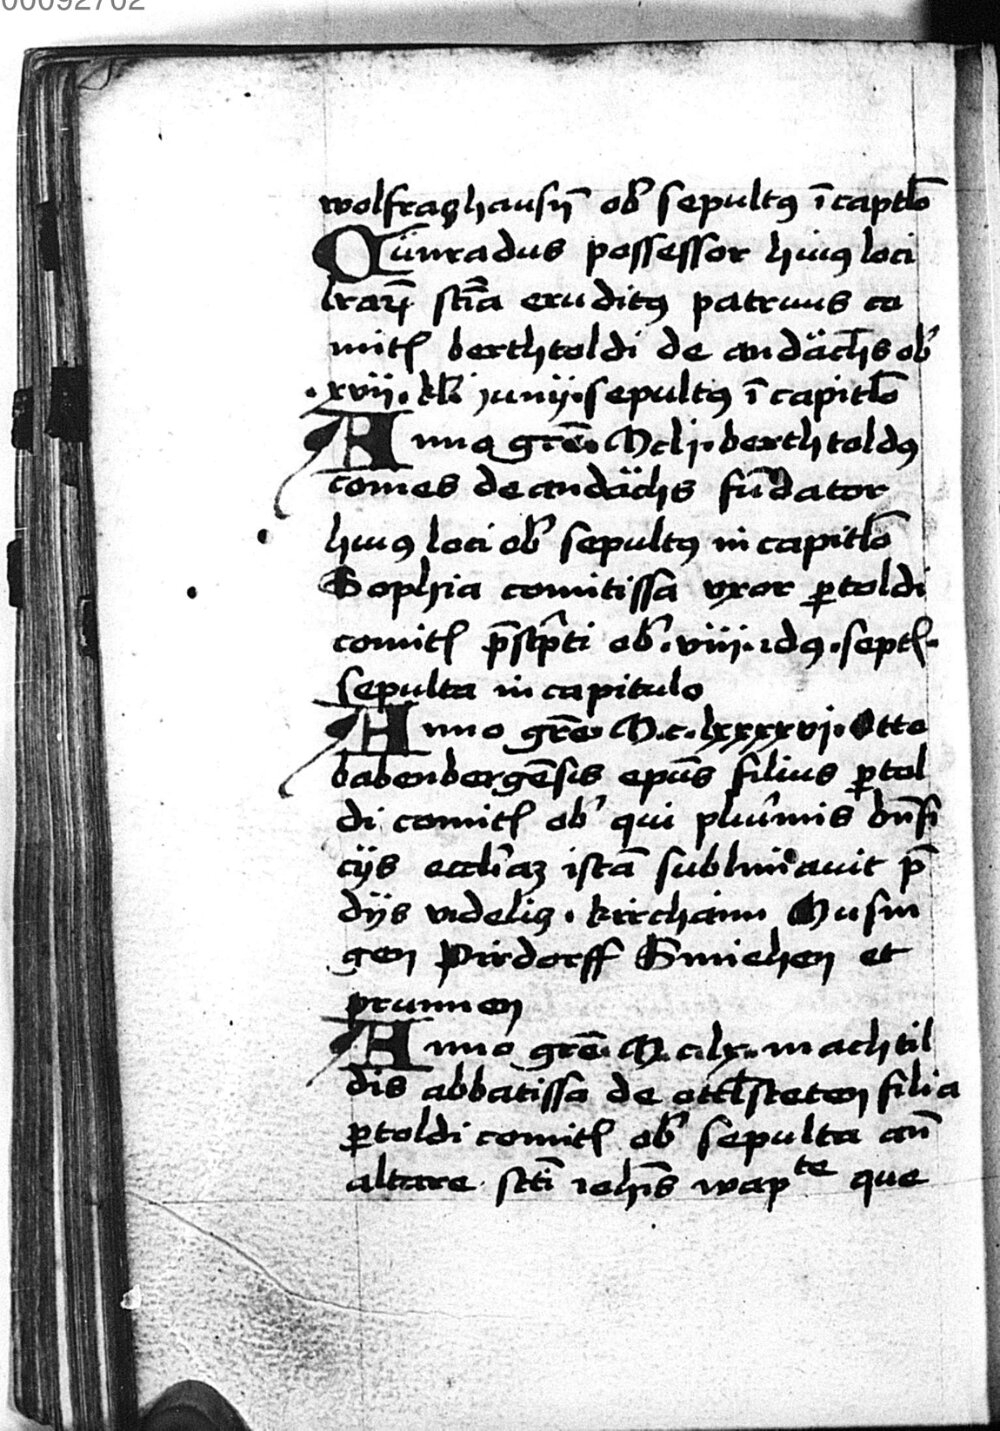 00092702
wolfraczhausn̄ ob' sepultꝯ ī captl̄o
Cünradus possessor huiꝯ loci
lrarꝝ sci̅a eruditꝯ patruus co
mitꝭ berthtoldi de andächs ob'
.xvii. kl̓. junij. sepultꝯ ī capitl̄o
Anno grē. M cli. berthtoldꝯ
comes de andächs fūdator
huiꝯ loci ob' sepultꝯ in capitl̄o
Sophia comitissa vxor ꝑtoldi
comitꝭ p̄sc̓pti ob'. viii. idꝯ. septꝭ.
sepulta in capitulo
Anno gr̄e. M.c.lxxxxvi. Otto
babenbergēsis ep̄us filius ꝑtol
di comitꝭ ob' qui plur̓imis bn̄fi
cijs eccl̓iaꝫ istā sublimauit p̄
dijs videlicꝫ. kirchaim Husin
gen Pirdorff Smiehen et
prunnen
Anno grē. M.c.lx. machtil
dis abbatissa de otl̄steten filia
ꝑtoldi comitꝭ ob' sepulta an̄
altare sc̄ti ioh̄is wapte que